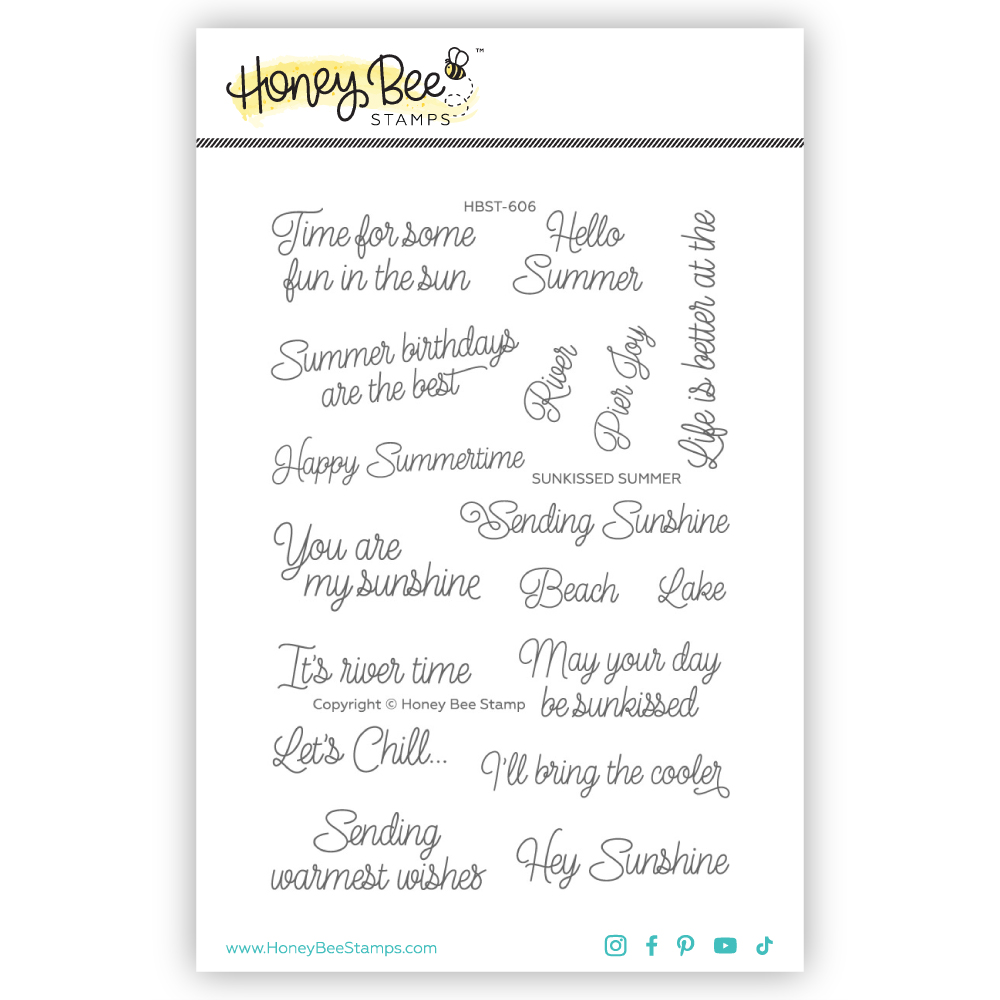 Honey Bee™
STAMPS
HBST-606
Time for some
fun in the sun
Hello
Summer
Life is better at the
Summer birthdays
are the best
River
Pier Joy
Happy Summertime
SUNKISSED SUMMER
Sending Sunshine
You are
my sunshine
Beach
Lake
It's river time
May your day
be sunkissed
Copyright © Honey Bee Stamp
Let's Chill...
I'll bring the cooler
Sending
warmest wishes
Hey Sunshine
www.HoneyBeeStamps.com